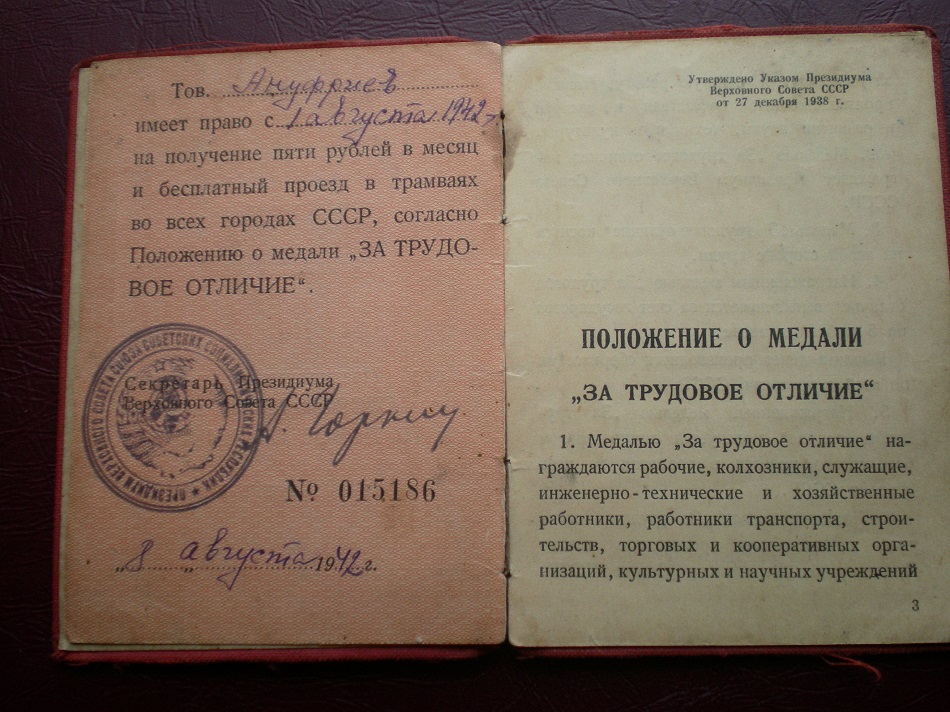 Тов. Ануфриев
имеет право с 1 августа 1942 г.
на получение пяти рублей в месяц
и бесплатный проезд в трамваях
во всех городах СССР, согласно
Положению о медали „ЗА ТРУДО-
ВОЕ ОТЛИЧИЕ“.
ПРЕЗИДИУМ ВЕРХОВНОГО СОВЕТА СОЮЗА СОВЕТСКИХ СОЦИАЛИСТИЧЕСКИХ РЕСПУБЛИК
Секретарь Президиума
Верховного Совета СССР
№ 015186
„8„ августа 1942 г.
Утверждено Указом Президиума
Верховного Совета СССР
от 27 декабря 1938 г.
ПОЛОЖЕНИЕ О МЕДАЛИ
„ЗА ТРУДОВОЕ ОТЛИЧИЕ“
1. Медалью „За трудовое отличие“ на-
граждаются рабочие, колхозники, служащие,
инженерно-технические и хозяйственные
работники, работники транспорта, строи-
тельств, торговых и кооперативных орга-
низаций, культурных и научных учреждений
3